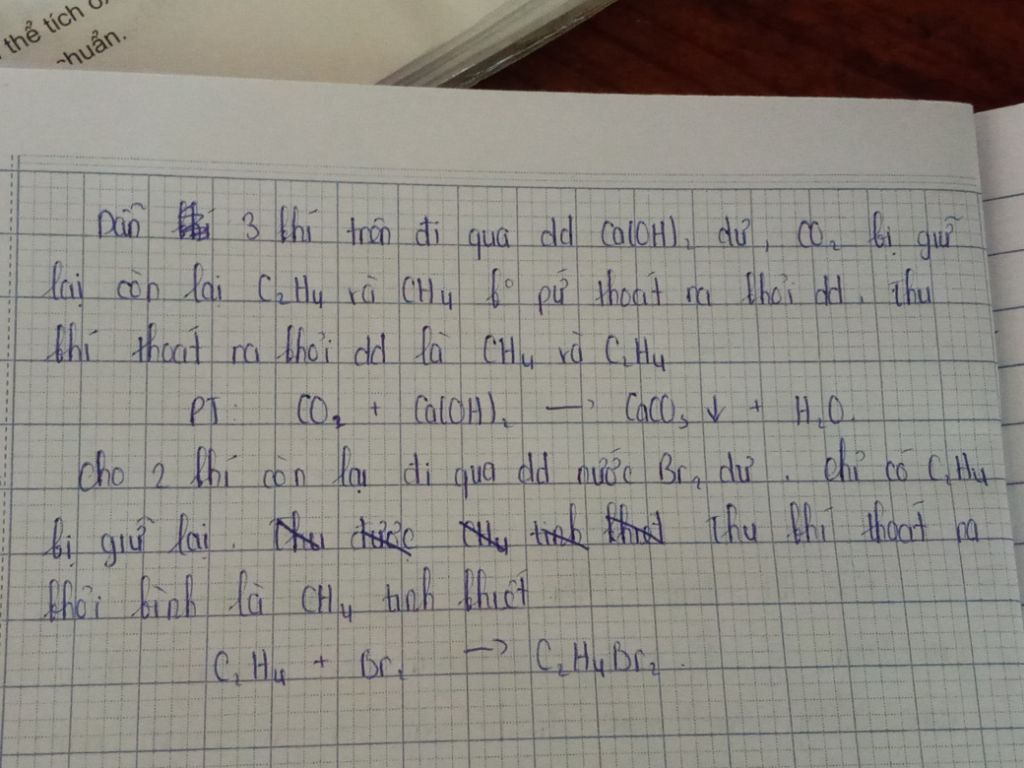 thể tích
chuẩn.
Dẫn 3 khí trên đi qua dd Ca(OH)₂ dư, CO₂ bị giữ
lại còn lại C₂H₄ và CH₄ k° pứ thoát ra khỏi dd. Thu
khí thoát ra khỏi dd là CH₄ và C₂H₄
PT: CO₂ + Ca(OH)₂ → CaCO₃ ↓ + H₂O.
Cho 2 khí còn lại đi qua dd nước Br₂ dư. Chỉ có C₂H₄
bị giữ lại. Thu được Thu khí thoát ra
khỏi bình là CH₄ tinh khiết
C₂H₄ + Br₂ → C₂H₄Br₂.